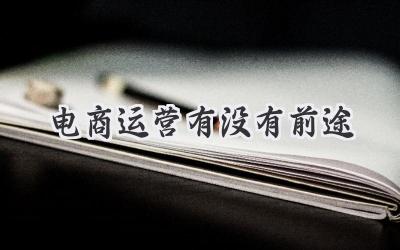 电商运营有没有前途